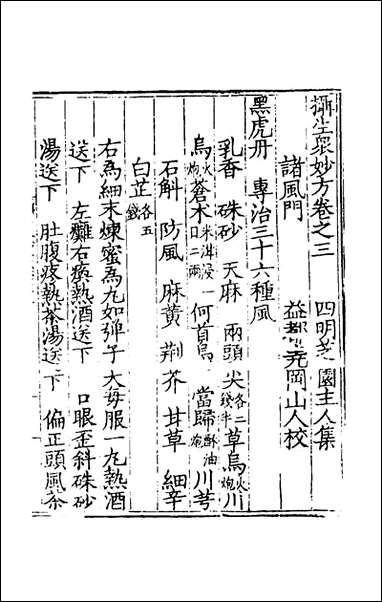 攝生衆妙方卷之三　四明芝園主人集
諸風門　益都堯岡山人校
黑虎丹　專治三十六種風
乳香　硃砂　天麻　兩頭尖各二錢半草烏火炮川
烏火炮蒼木米泔浸一二兩　何首烏　當歸酥油　川芎
石斛　防風　麻黃　荆芥　甘草　細辛
白芷各五錢
右為細末煉蜜為丸如弹子大每服一丸熱酒
送下　左癱右瘓熱酒送下　口眼歪斜硃砂
湯送下　肚腹疼熱茶湯送下　偏正頭風茶